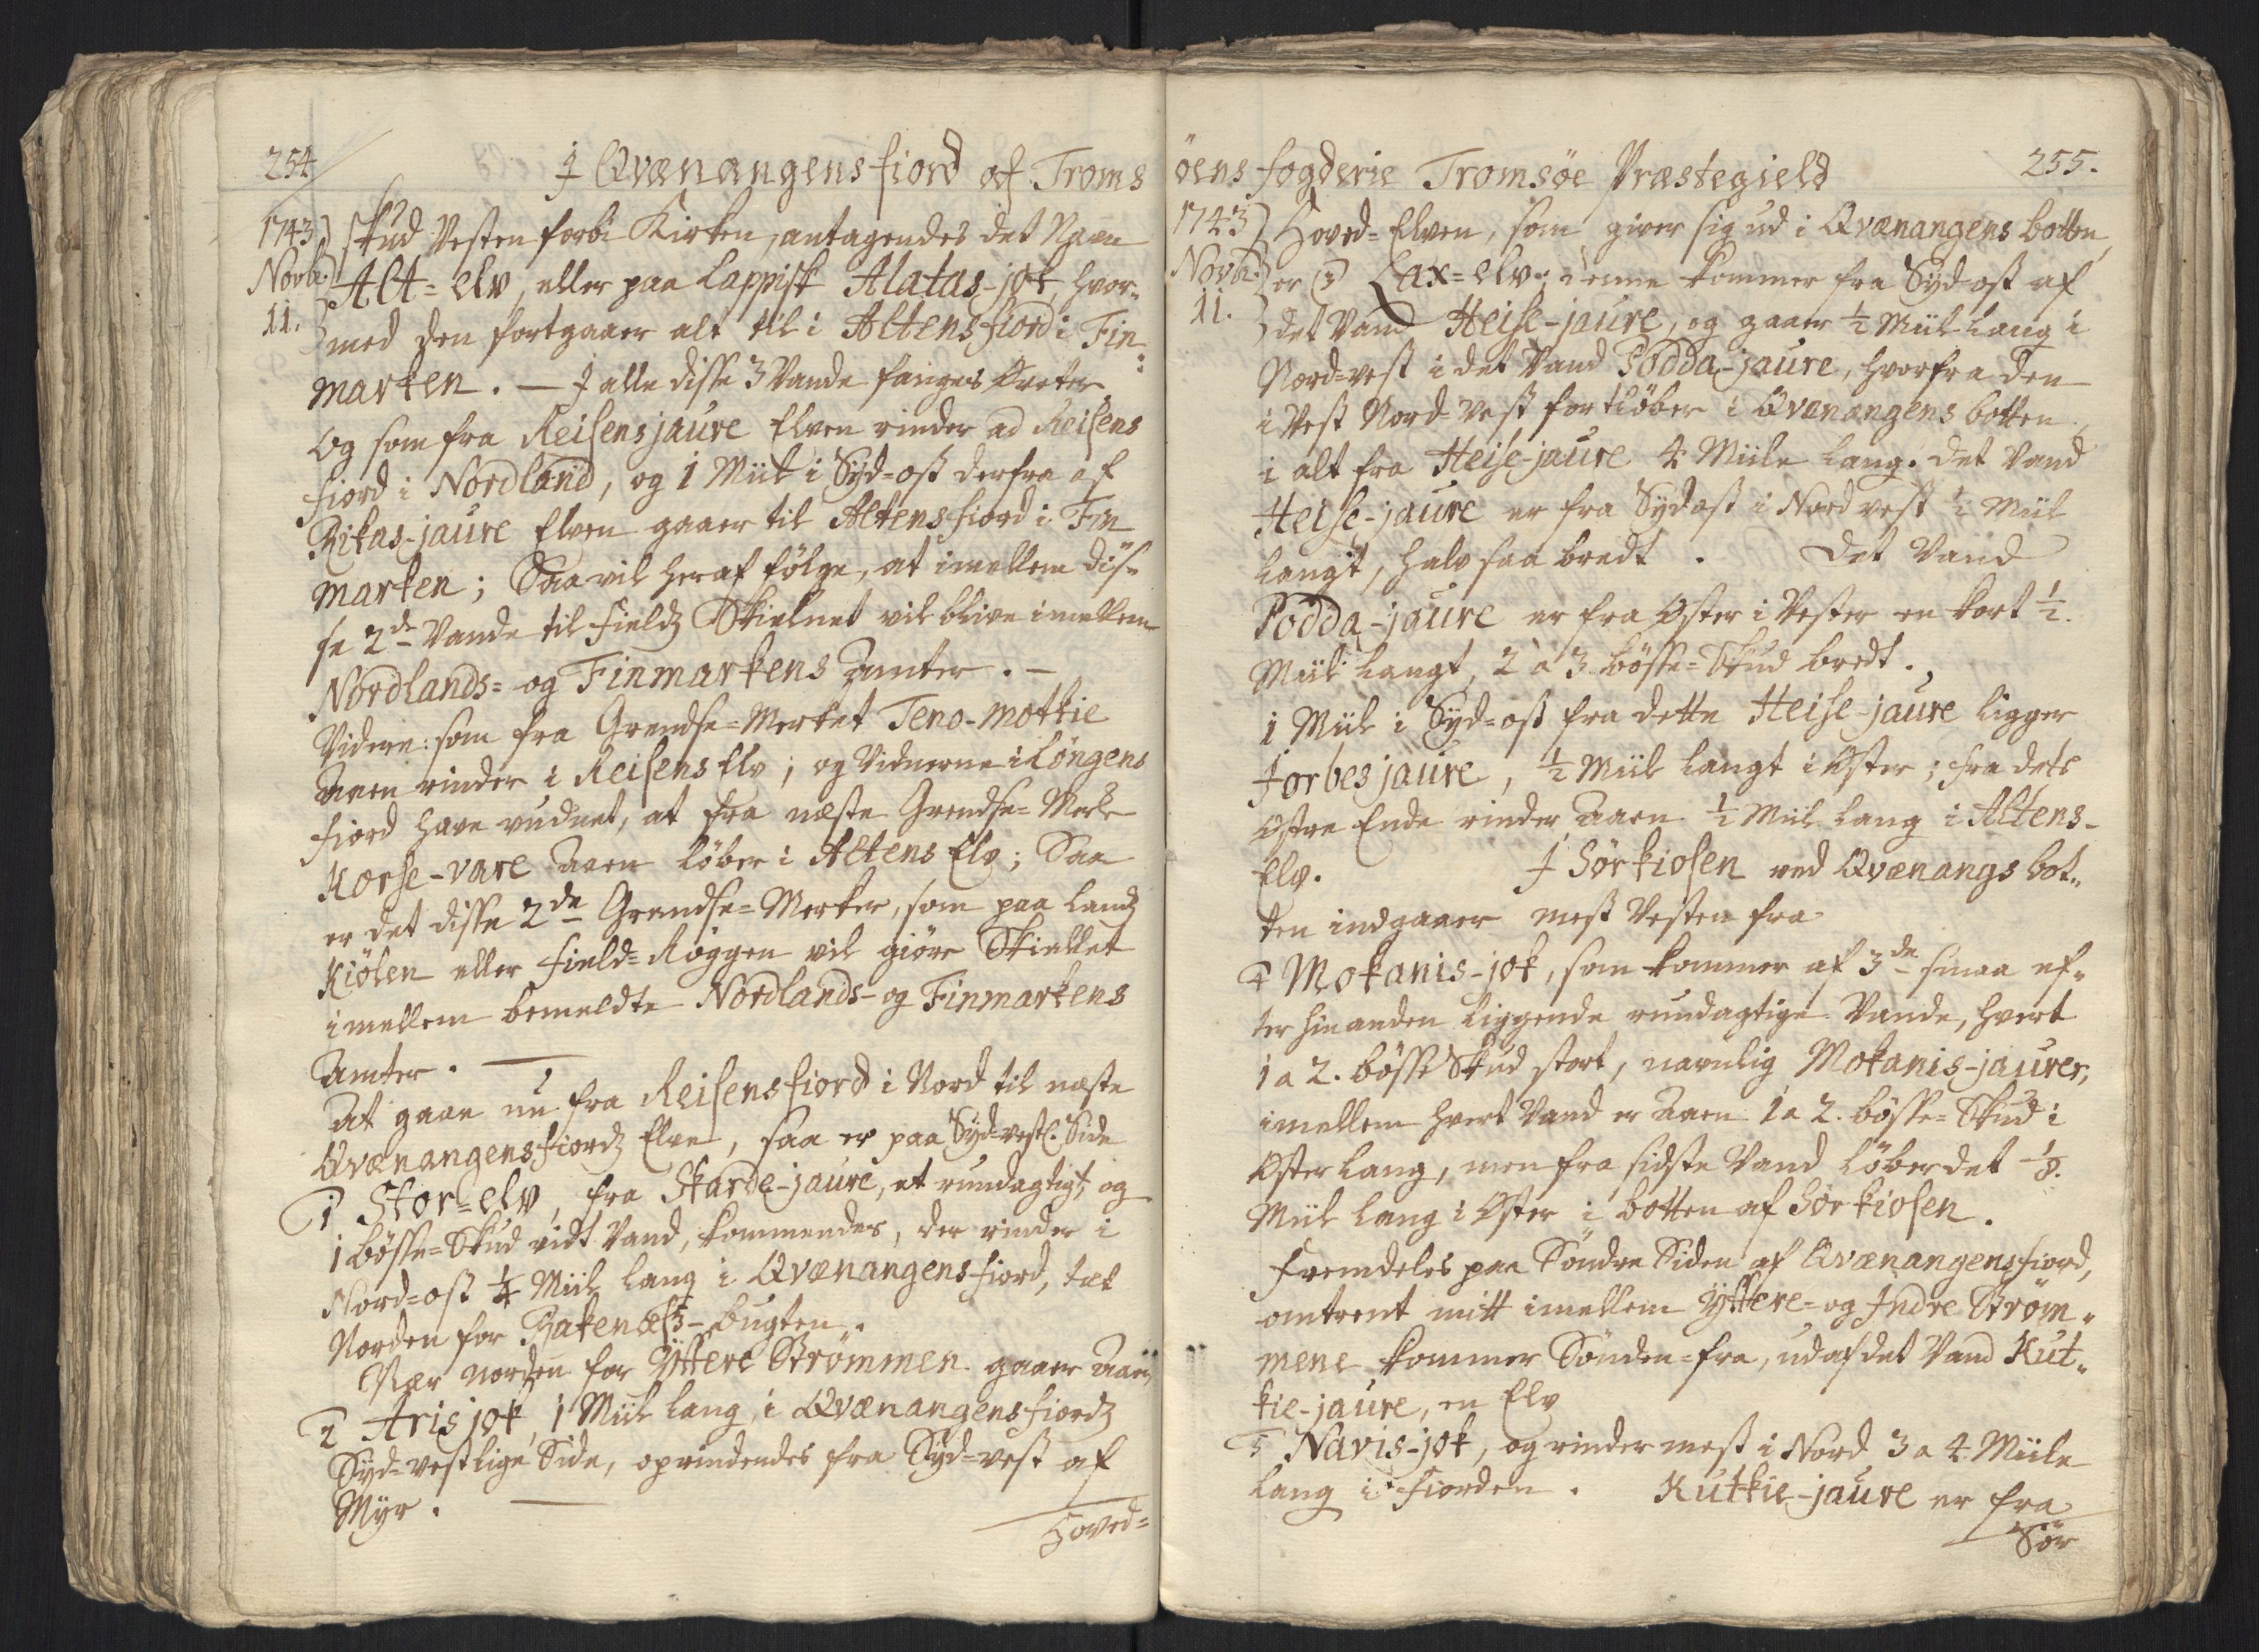 254
I Qvænangensfiord af Troms
1743 skud Vesten forbi Kirken, antagendes det Navn
Novbr. Alt=elv, eller paa Lappisk Alatas-jok, hvor=
11. med den fortgaaer alt til i Altensfiord i Fin=
marken. — I alle disse 3 Vande fanges Ørreter
Og som fra Reisensjaure Elven rinder ad Reisens
fiord i Nordland, og 1 Miil i Syd=ost derfra af
Rikas-jaure Elven gaaer til Altensfiord i Fin
marken; Saa vil heraf følge, at imellem dis=
se 2de Vande til Fields Skielnet vil blive imellem
Nordlands= og Finmarkens Amter. —
Videre: som fra Grendse=Merket Teno-motkie
Aaen rinder i Reisens Elv; og Vidnerne i Lÿngens
fiord have vudnet, at fra neste Grendse=Merke
Korse-vare Aaen løber i Altens Elv; Saa
er det disse 2de Grendse=Merker, som paa Lands
Kiølen eller Field=Røggen vil giøre Skiellet
imellem bemeldte Nordlands- og Finmarkens
Amter. —
At gaae nu fra Reisensfiord i Nord til neste
Qvænangensfiords Elve, saa er paa Syd=vestl. Side
1 Stor=elv, fra Skarde-jaure, et rundagtigt og
1 bøsse=Skud vidt Vand, kommendes, der rinder i
Nord=ost 1/4 Miil lang i Qvænangensfiord, tæt
Norden for Rakenæss-bugten.
Nær norden for Ÿttere Strømmen gaaer Aaen
2 Arisjok, 1 Miil lang, i Qvænangensfiords
Syd=vestlige Side, oprindendes fra Syd=vest af
Myr. —
Hoved=
255.
öens fogderie Tromsöe Præstegield
1743 Hoved=Elven, som giver sig ud i Qvænangens botten,
Novbr. er 3 Lax=elv; denne kommer fra Syd=ost af
11. det Vand Heise-jaure, og gaaer 1/2 Miil lang i
Nord=vest i det Vand Podda-jaure, hvorfra den
i Vest Nord=Vest fortløber i Qvænangens botten.
i alt fra Heise-jaure 4 Miile lang. det Vand
Heise-jaure er fra Sydost i Nordvest 1/2 Miil
langt, halv saa bredt. Det Vand
Podda-jaure er fra Øster i Vester en kort 1/2.
Miil langt, 2 a 3 bösse=Skud bredt.
1 Miil i Syd=ost fra dette Heise-jaure ligger
Jorbesjaure, 1/2 Miil langt i Øster; fra dets
Østre Ende rinder Aaen 1/2 Miil lang i Altens-
Elv. I Sörkiosen ved Qvænangs bot=
ten indgaaer mest Vesten fra
4 Mokanis-jok, som kommer af 3de smaa ef=
ter hinanden liggende rundagtige Vande, hvert
1 a 2. bösse Skud stort, navnlig Mokanis-jaurer,
imellem hvert Vand er Aaen 1 a 2. bösse=Skud i
Øster lang, men fra sidste Vand løber det 1/8.
Miil lang i Øster i botten af Sörkiosen.
Fremdeles paa Söndre Siden af Qvænangensfiord,
omtrent mitt imellem Ÿttere= og Indre Ström=
mene kommer Sönden=fra, ud af det Vand Kut=
kie-jaure, en Elv
5 Navis-jok, og rinder mest i Nord 3 a 4 Miile
lang i Fiorden. Kutkie-jaure er fra
Sör